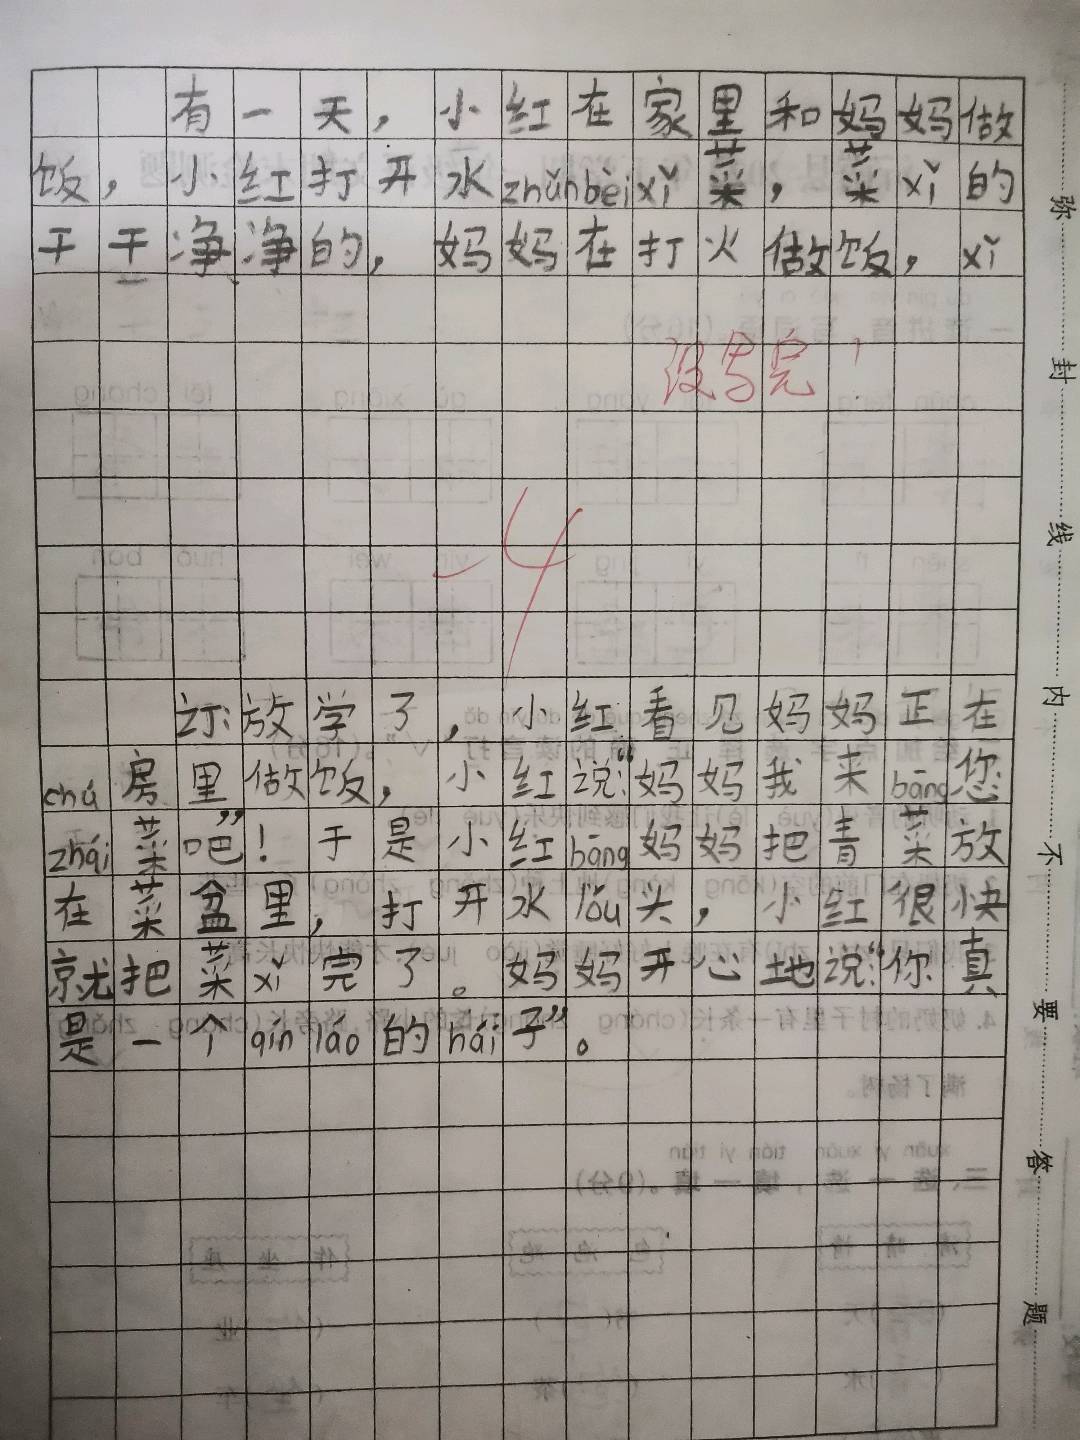 有一天，小红在家里和妈妈做
饭，小红打开水zhǔnbèixǐ菜，菜xǐ的
干干净净的，妈妈在打火做饭，xǐ
没写完
-4
放学了，小红看见妈妈正在
chú房里做饭，小红说：“妈妈我来bāng您
zhái菜吧”！于是小红bāng妈妈把青菜放
在菜盆里，打开水lóu头，小红很快
就把菜xǐ完了。妈妈开心地说：“你真
是一个qín láo的hái子”。
弥封线内不要答题